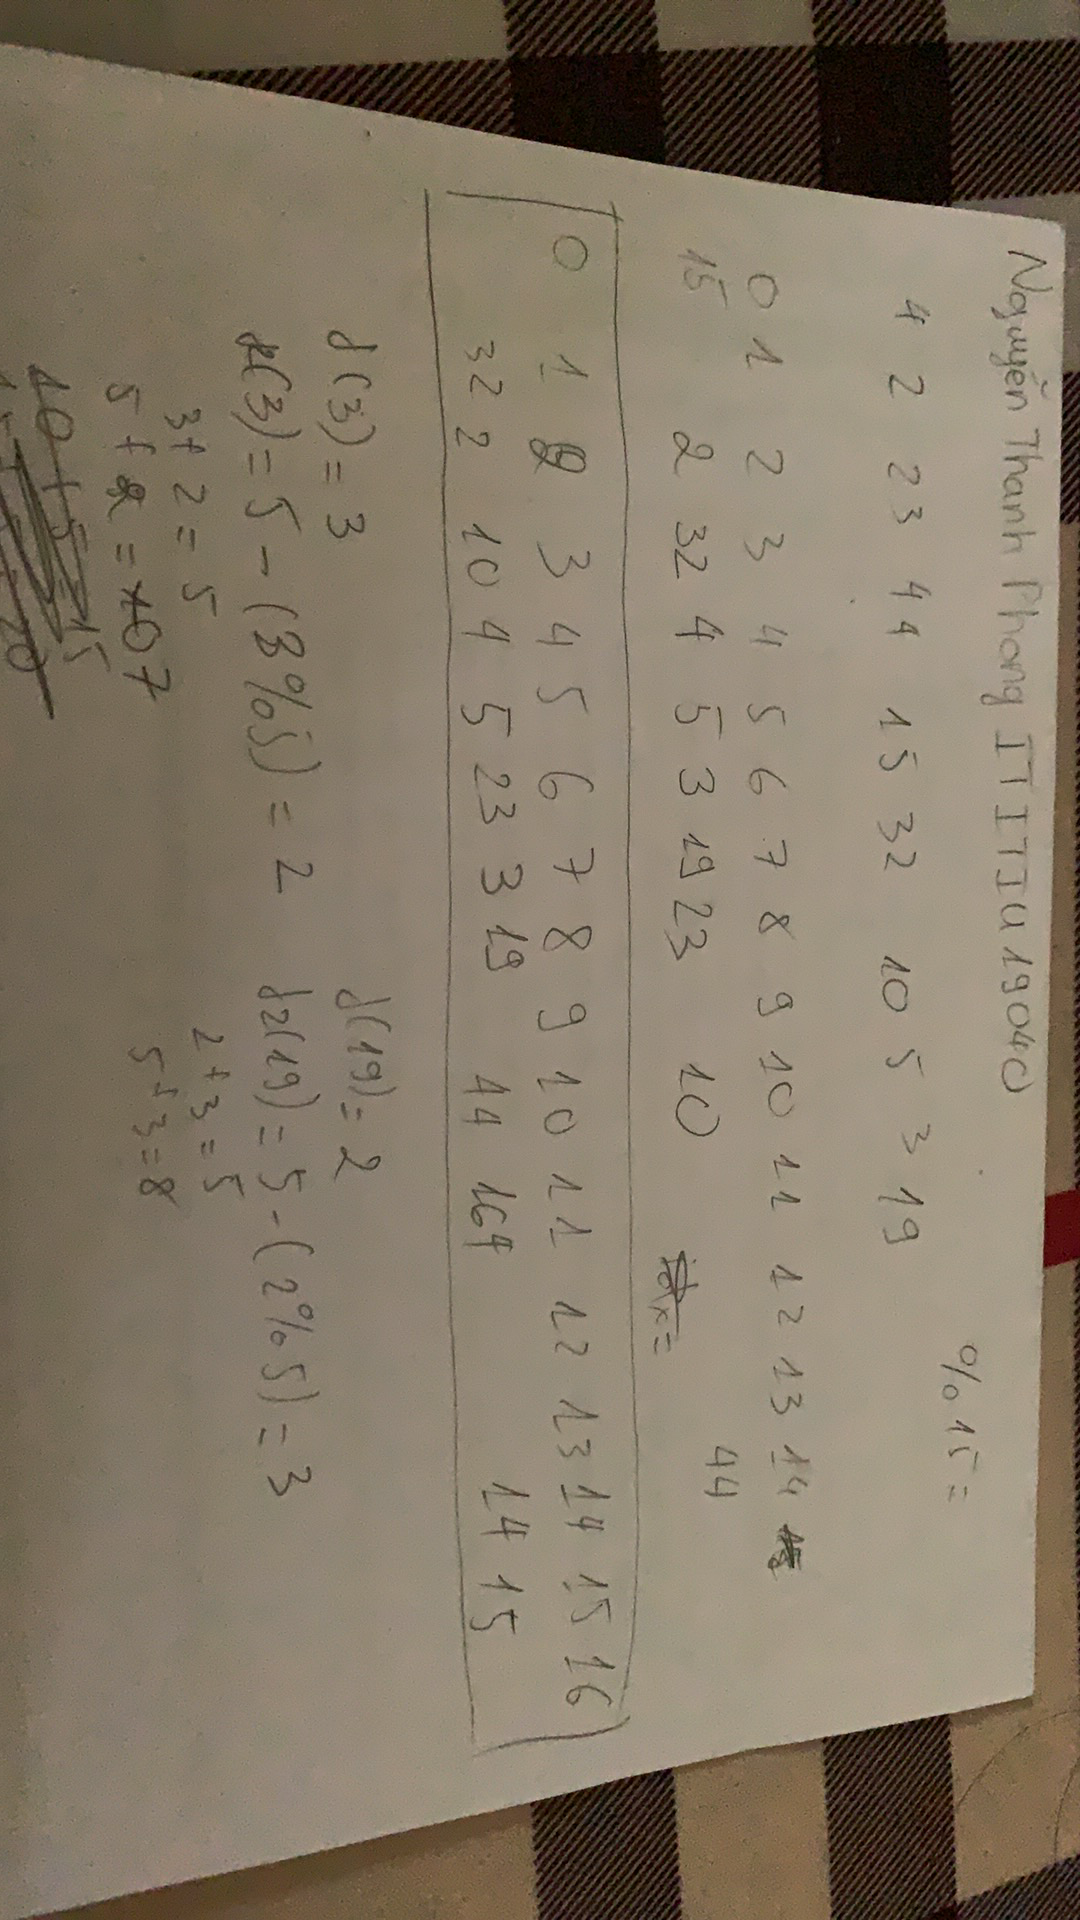 Nguyễn Thanh Phong ITITIU19040
% 15 =
4 2 23 44 15 32 10 5 3 19
0 1 2 3 4 5 6 7 8 9 10 11 12 13 14
15 2 32 4 5 3 19 23 10 44
0 1 2 3 4 5 6 7 8 9 10 11 12 13 14 15 16
32 2 10 4 5 23 3 19 44 164 14 15
d(3) = 3 d(19) = 2
d(3) = 5 - (3%5) = 2 d2(19) = 5 - (2%5) = 3
3+2 = 5 2+3 = 5
5+2 = 7 5+3 = 8
10 + 5 = 15